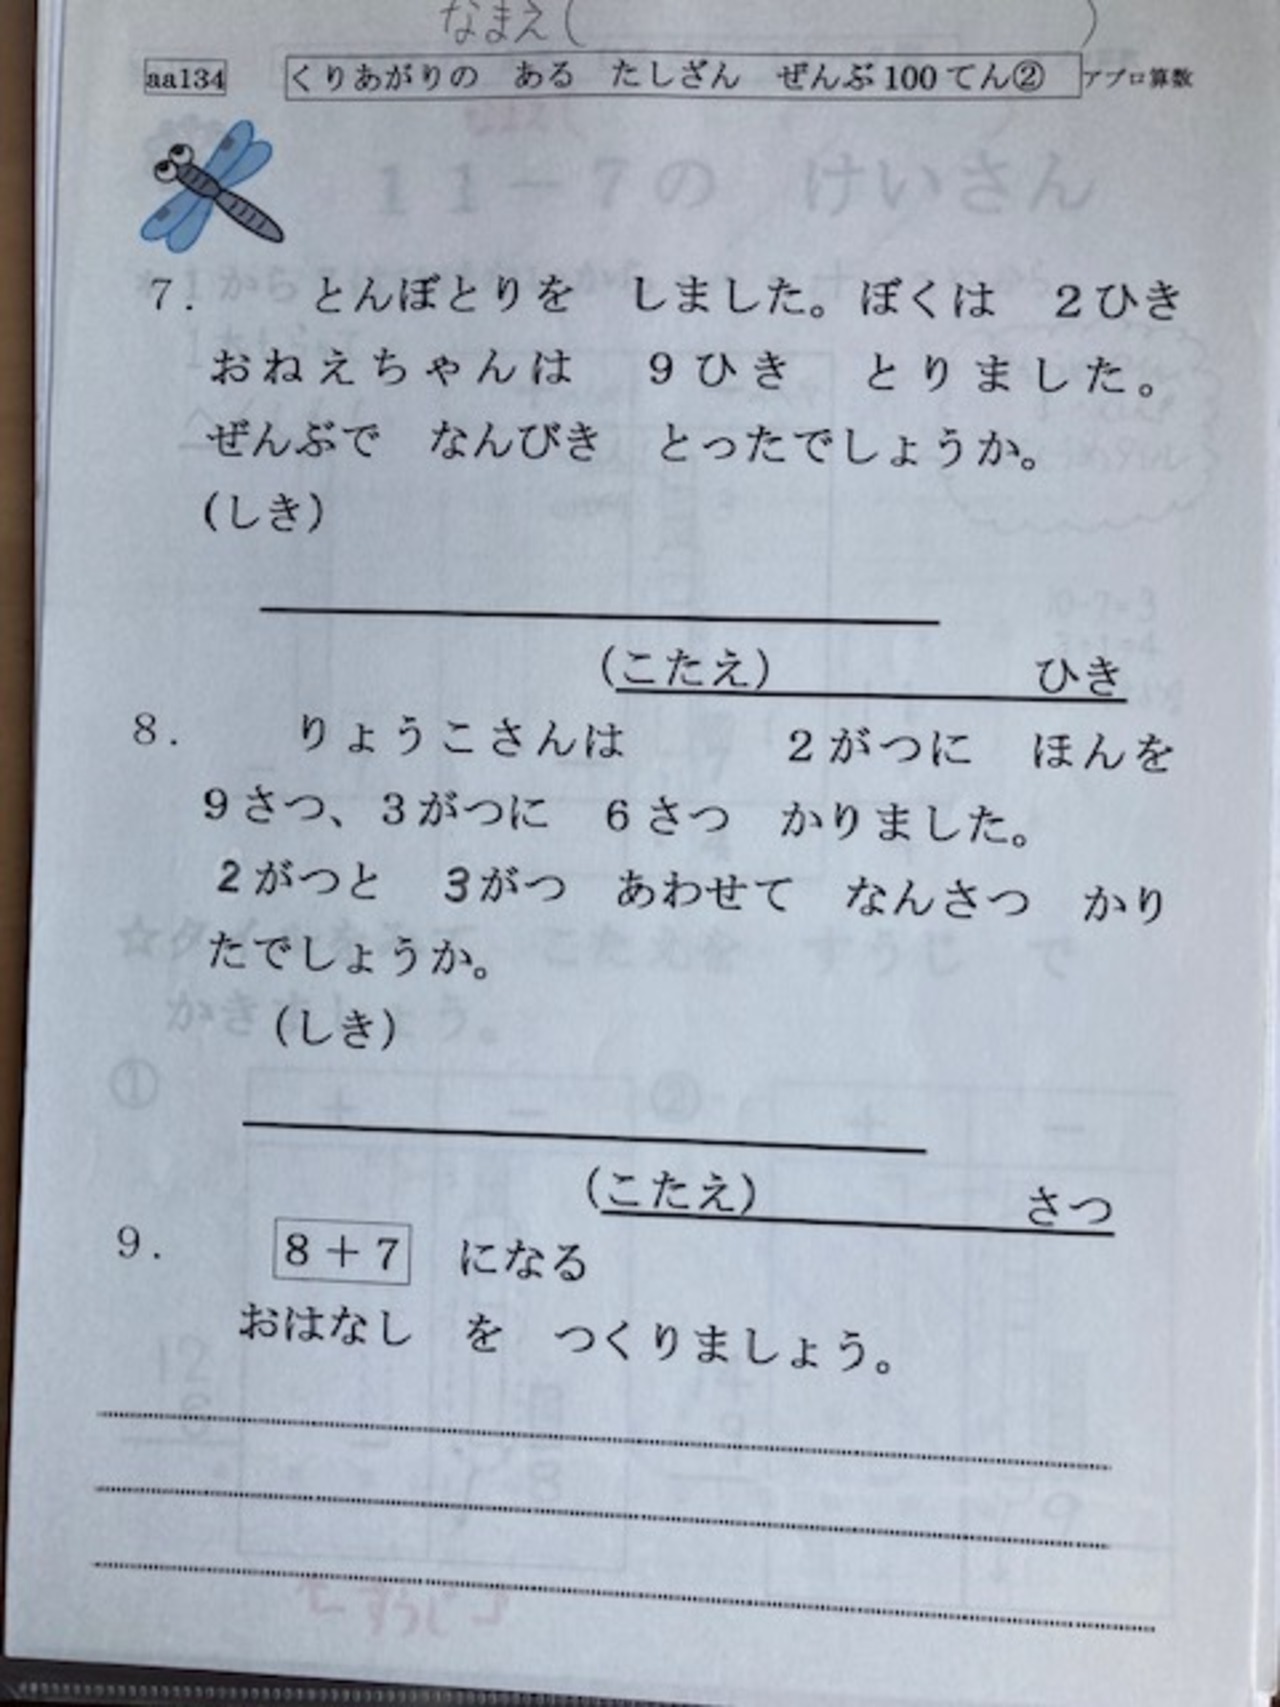 なまえ(　　　　)
aa134 くりあがりの　ある　たしざん　ぜんぶ100てん② アプロ算数
11－7の　けいさん
7.　とんぼとりを　しました。ぼくは　2ひき
おねえちゃんは　9ひき　とりました。
ぜんぶで　なんびき　とったでしょうか。
(しき)
(こたえ)　　　　ひき
8.　りょうこさんは　　2がつに　ほんを
9さつ、3がつに　6さつ　かりました。
2がつと　3がつ　あわせて　なんさつ　かり
たでしょうか。
(しき)
(こたえ)　　　　さつ
9.　8＋7　になる
おはなし　を　つくりましょう。